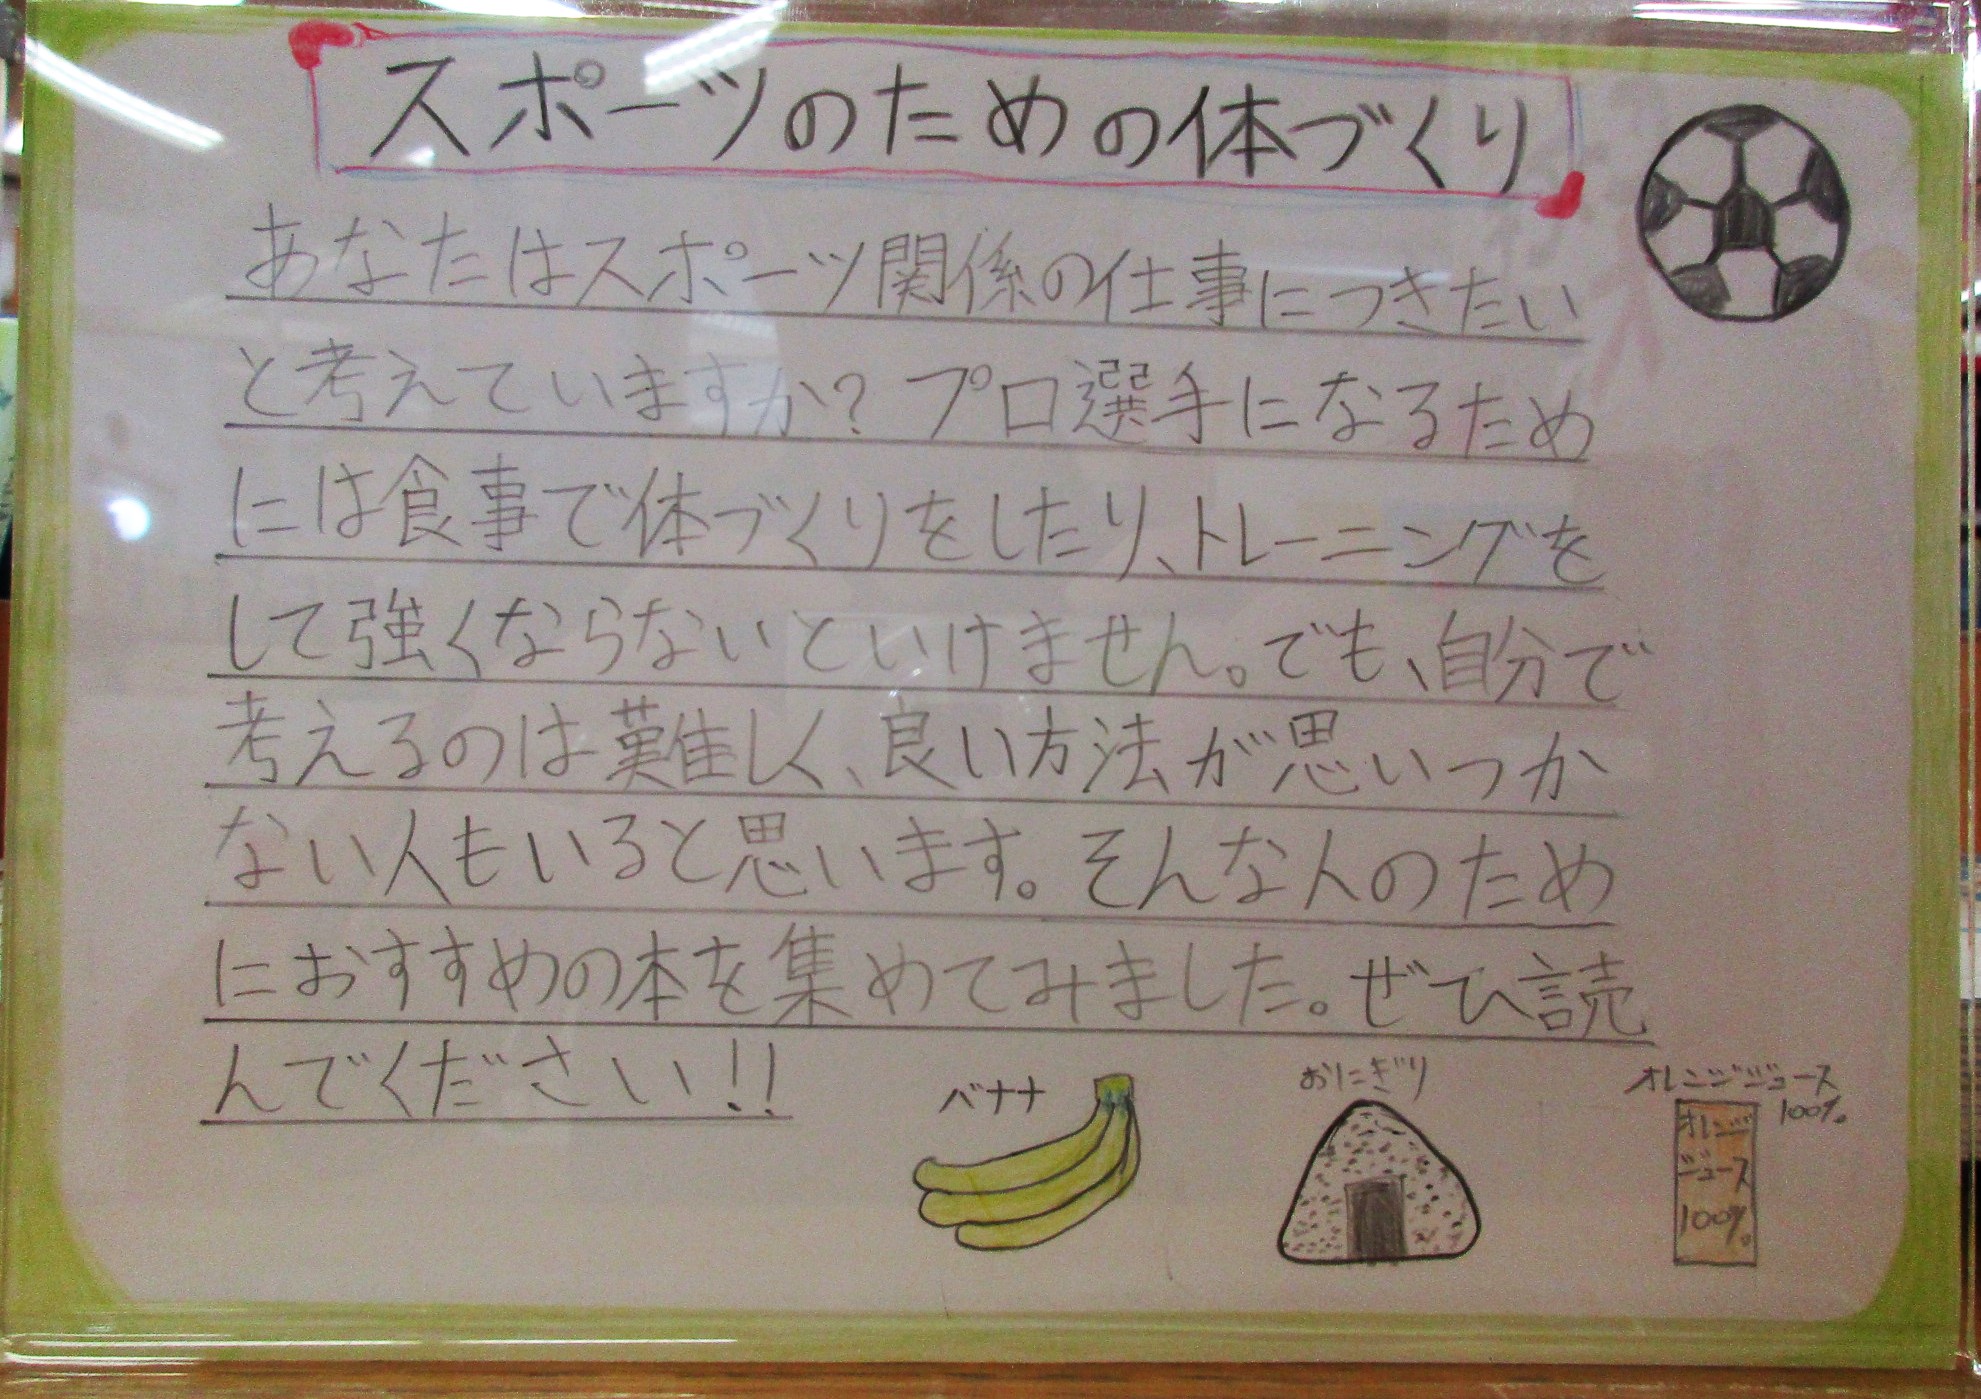 スポーツのための体づくり
あなたはスポーツ関係の仕事につきたい
と考えていますか?プロ選手になるため
には食事で体づくりをしたり、トレーニングを
して強くならないといけません。でも、自分で
考えるのは難しく、良い方法が思いつか
ない人もいると思います。そんな人のため
におすすめの本を集めてみました。ぜひ読
んでください!!
バナナ
おにぎり
オレンジジュース
100%
オレンジ
ジュース
100%